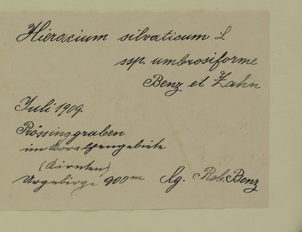 Hieracium silvaticum L
ssp. umbrosiforme
Benz et Zahn
Juli 1909
Rössinggraben
im Koralpengebiete
(Kärnten)
Urgebirge 900m lg. Rob. Benz